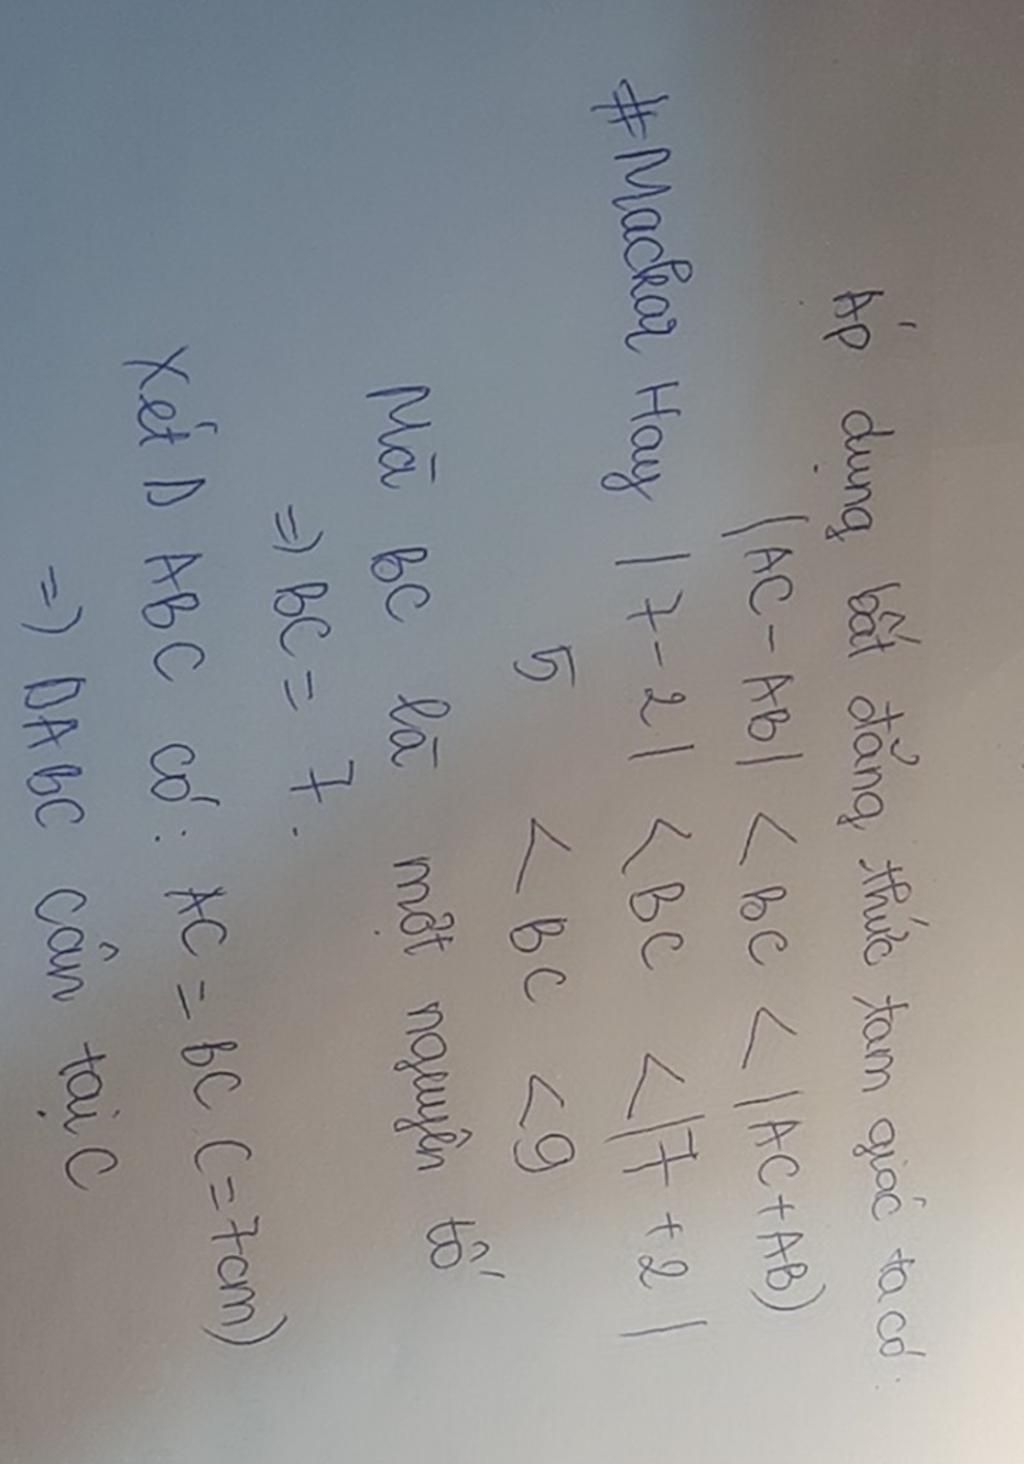 Áp dụng bất đẳng thức tam giác ta có.
|AC - AB| < BC < |AC + AB)
#Mackar Hay |7 - 2| < BC < |7 + 2|
5 < BC < 9
Mà BC là một nguyên tố
=) BC = 7.
Xét D ABC có: AC = BC (=7cm)
=) DABC cân tại C